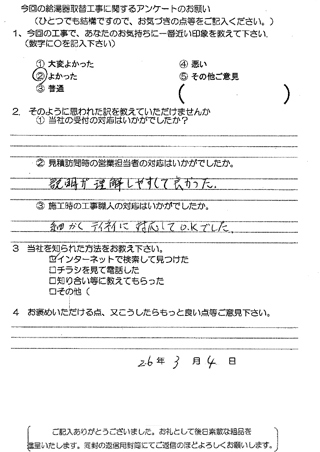 今回の給湯器取替工事に関するアンケートのお願い
(ひとつでも結構ですので、お気づきの点等をご記入ください。)
1、今回の工事で、あなたのお気持ちに一番近い印象を教えて下さい。
(数字に○を記入下さい)
① 大変よかった ④ 悪い
② よかった ⑤ その他ご意見
③ 普通 ( )
2. そのように思われた訳を教えていただけませんか
① 当社の受付の対応はいかがでしたか?
② 見積訪問時の営業担当者の対応はいかがでしたか。
説明が理解しやすくて良かった.
③ 施工時の工事職人の対応はいかがでしたか。
細かくテイネイに対応してO.Kでした.
3 当社を知られた方法をお教え下さい。
☑インターネットで検索して見つけた
□チラシを見て電話した
□知り合い等に教えてもらった
□その他 (
4 お褒めいただける点、又こうしたらもっと良い点等ご意見下さい。
26 年 3 月 4 日
ご記入ありがとうございました。お礼として後日素敵な粗品を
進呈いたします。同封の返信用封筒にてご返信のほどよろしくお願いします。